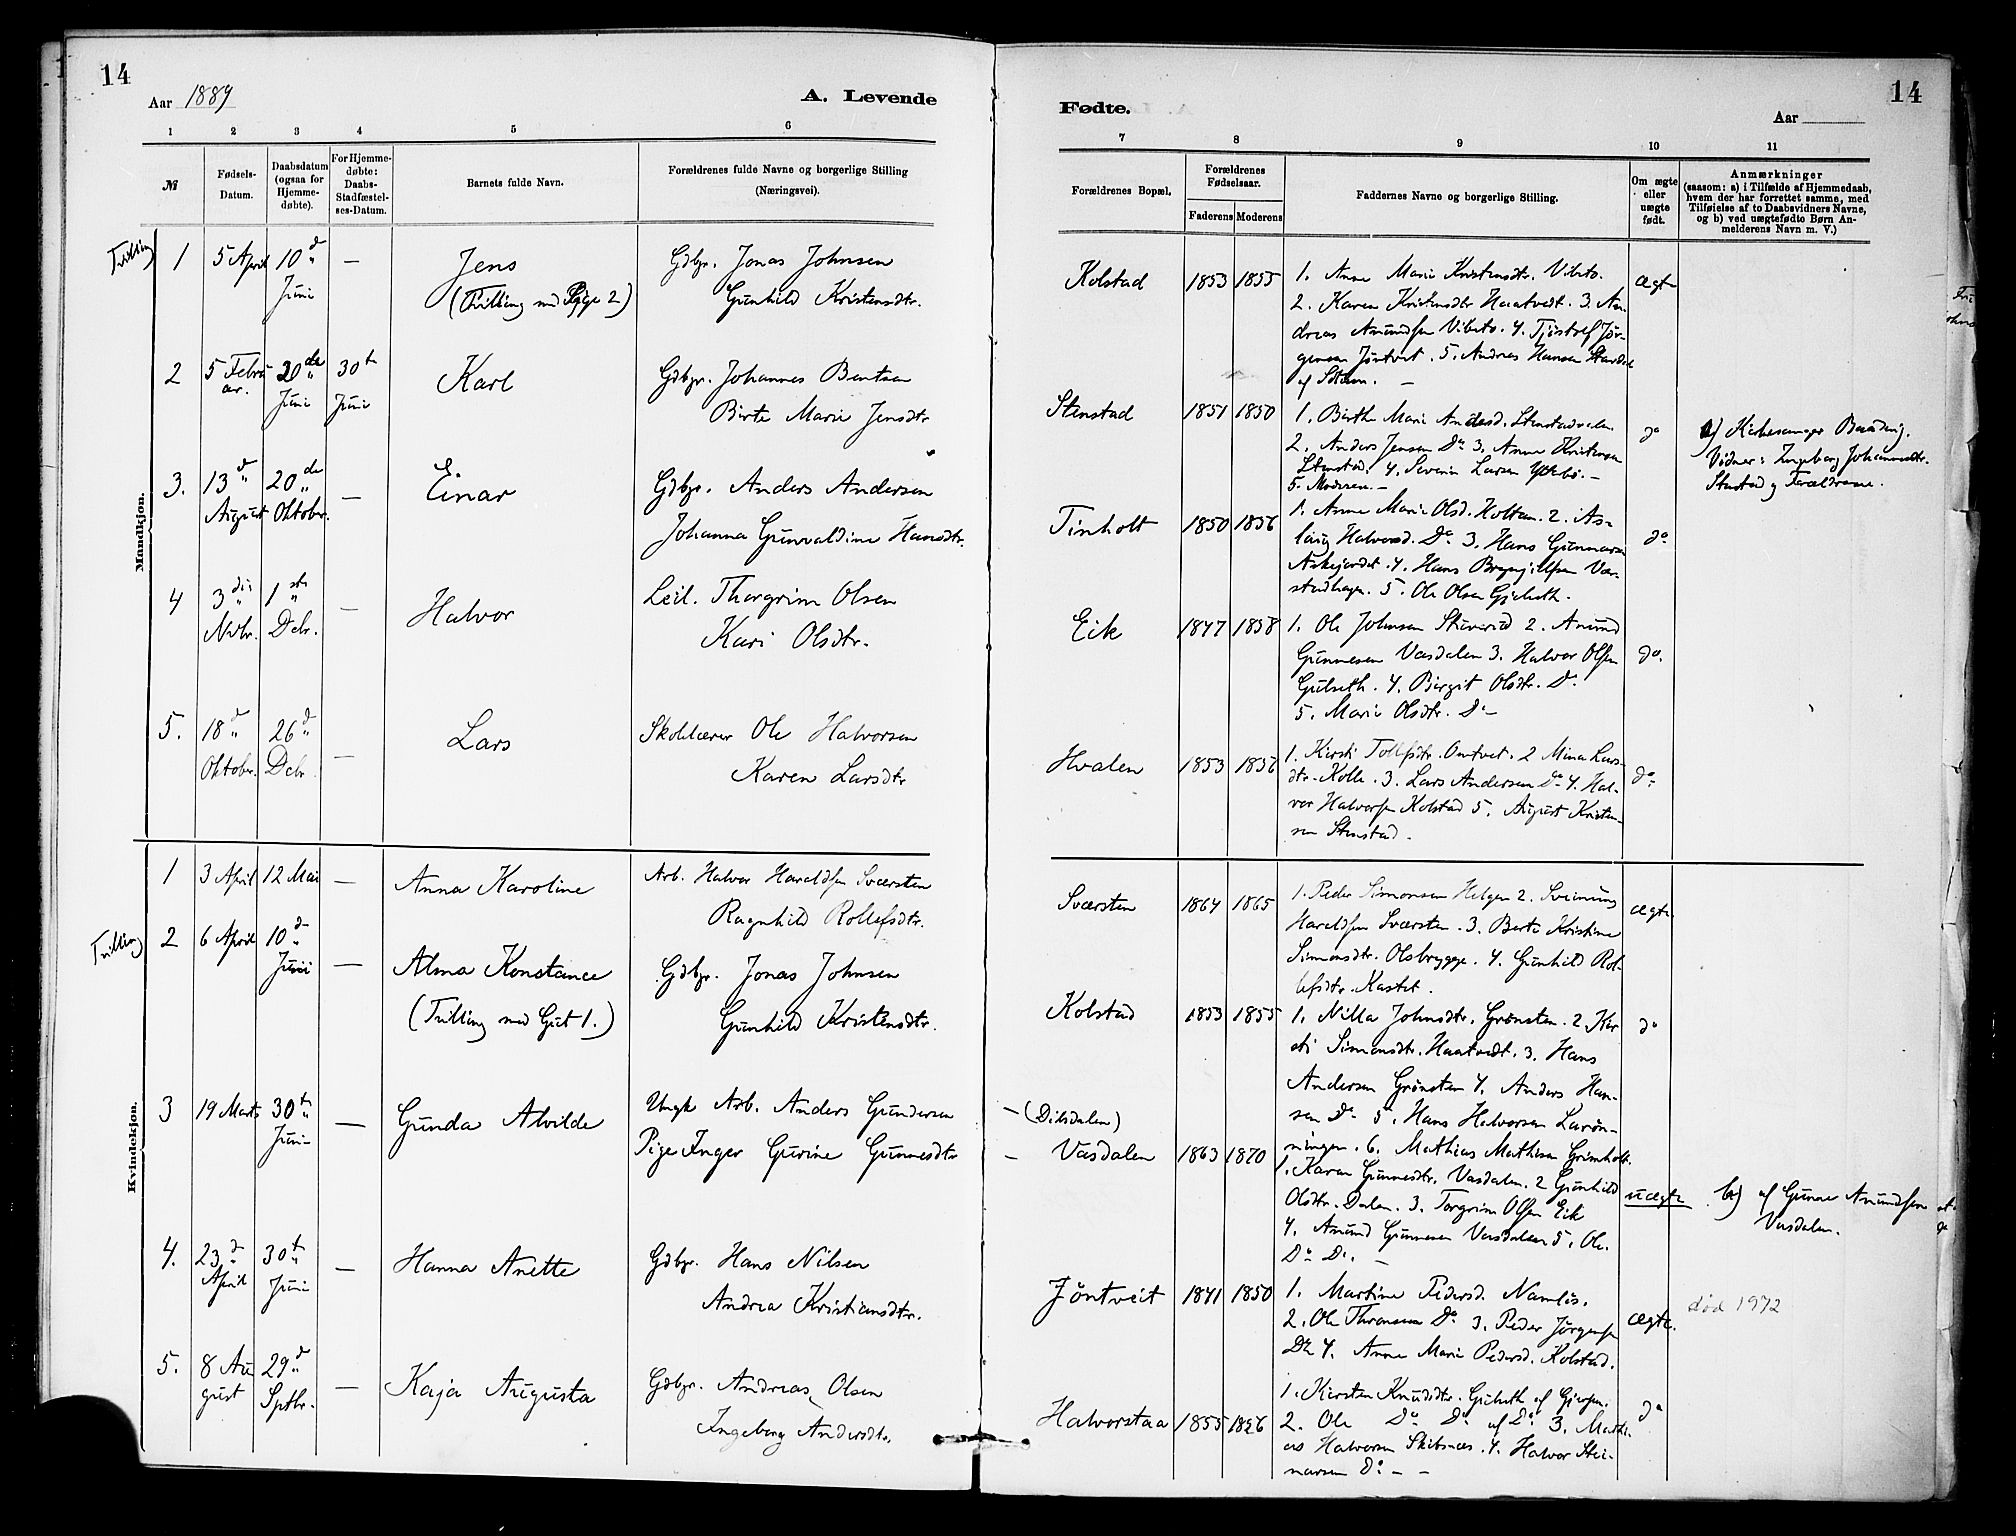 14
Aar 1889
A. Levende
1 2 3 4 5 6
№
Fødsels-Datum.
Daabsdatum (ogsaa for Hjemme-døbte).
For Hjemme-døbte: Daabs-Stadfæstel-ses-Datum.
Barnets fulde Navn.
Forældrenes fulde Navne og borgerlige Stilling
(Næringsvei).
Mandkjøn.
Tvilling 1 5 April 10d Juni — Jens
(Tvilling med Pige 2)
Gdbr. Jonas Johnsen
Gunhild Kristensdtr.
2 5 Februar. 20de Juni 30t Juni Karl
Gdbr. Johannes Bentsen
Birte Marie Jensdtr
3. 13d August 20de Oktober. — Einar
Gdbr. Anders Andersen
Johanna Gunvaldine Hansdtr.
4 3die Nvbr. 1ste Dcbr. — Halvor
Leil. Thorgrim Olsen
Kari Olsdtr.
5. 18d Oktober. 26d Dcbr. — Lars
Skolelærer Ole Halvorsen
Karen Larsdtr
Kvindekjøn.
1 3 April 12 Mai — Anna Karoline
Arb. Halvor Haraldsen Sværsten
Ragnhild Rollefsdtr.
Tvilling 2 6 April 10d Juni — Alma Konstance
(Tvilling med Gut 1.)
Gdbr. Jonas Johnsen
Gunhild Kristensdtr.
3 19 Marts 30t Juni — Gunda Alvilde
Ungk Arb. Anders Gundersen
Pige Inger Gurine Gunnesdtr
4. 23d April 30t Juni — Hanna Anette
Gdbr. Hans Nilsen
Andrea Kristiansdtr.
5. 8 August 29d Sptbr. — Kaja Augusta
Gdbr. Andreas Olsen
Ingeborg Andersdtr.
14
Fødte.
Aar
7 8 9 10 11
Forældrenes Bopæl.
Forældrenes Fødselsaar.
Faderens Moderens
Faddernes Navne og borgerlige Stilling.
Om ægte eller uægte født.
Anmærkninger
(saasom: a) i Tilfælde af Hjemmedaab,
hvem der har forrettet samme, med
Tilføielse af to Daabsvidners Navne,
og b) ved uægtefødte Børn An-
melderens Navn m. V.)
Kolstad 1853 1855
1. Anne Marie Kristensdtr. Vibeto.
2. Karen Kristensdtr Haatvedt. 3. An-
dreas Amundsen Vibeto. 4. Tjostolf Jør-
gensen Jøntvet. 5. Andreas Hansen
ægte
Stenstad 1851 1850
1. Birthe Marie Andersd. Stenstadvalen
2. Anders Jensen Do 3. Anne Kristensen
Stenstad. 4. Severin Larsen Yttebø. —
5. Moderen. —
do
a) Kirkesanger
Vidner: Ingeborg Johannesdtr.
Stenstad og Forældrene.
Tinholt 1850 1856
1. Anne Marie Olsd. Holtan. 2. As-
laug Halvorsd. Do 3. Hans Gunnarsen
Askejordet. 4. Hans Brynjulfsen Vær-
stadhagen. 5. Ole Olsen Gjelseth.
do
Eik 1847 1858
1. Ole Johnsen 2. Amund
Gunnesen Vasdalen 3. Halvor Olsen
Gulseth. 4. Birgit Olsdtr. Do
5. Marie Olsdtr. Do —
do.
Hvalen 1853 1856
1. Kirsti Tollefsdtr. Omtvet. 2 Mina Lars-
dtr. Kolle. 3. Lars Andersen Do 4. Hal-
vor Halvorsen Kolstad 5. August Kristen-
sen Stenstad.
do
Sværsten 1864 1865
1. Peder Simonsen Helgen 2. Sveinung
Haraldsen Sværsten. 3. Berte Kristine
Simonsdtr. Olsbrygge. 4. Gunhild Rol-
lefsdtr. Kastet.
ægte
Kolstad 1853 1855
1. Nilla Johnsdtr. Grønsten. 2 Kir-
sti Simonsdtr. Haatvedt. 3. Hans
Andersen Grønsten 4. Anders Han-
sen Do 5. Hans Halvorsen Larøn-
ningen. 6. Mathias Mathisen Grimholt.
do
— (Dilsdalen)
— Vasdalen 1863 1870
1. Karen Gunnesdtr. Vasdalen. 2 Gunhild
Olsdtr. Dalen. 3. Torgrim Olsen Eik
4. Amund Gunnesen Vasdalen 5. Ole.
Do Do. —
uægte
b) af Gunne Amundsen
Vasdalen.
Jøntveit 1841 1850
1. Martine Pedersd. Namløs.
2. Ole Thronsen Do 3. Peder Jørgensen
Do 4. Anne Marie Pedersd. Kolstad.
ægte.
død 1972
Halvorstaa 1855 1856
1. Kirsten Knudsdtr. Gulseth af Gjerpen.
2. Ole Do Do af Do 3. Mathi-
as Halvorsen Skilsnæs. 4. Halvor Stei-
narsen Do — —
do